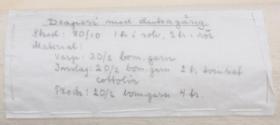 Draperi med dukagång.
Sked: 80/10 1 tr i solv, 2 tr i rör
Material:
Varp: 20/2 bom.garn
Inslag: 20/2 bom.garn 2 tr, 
cottolin
20/2 bomgarn 4 tr.